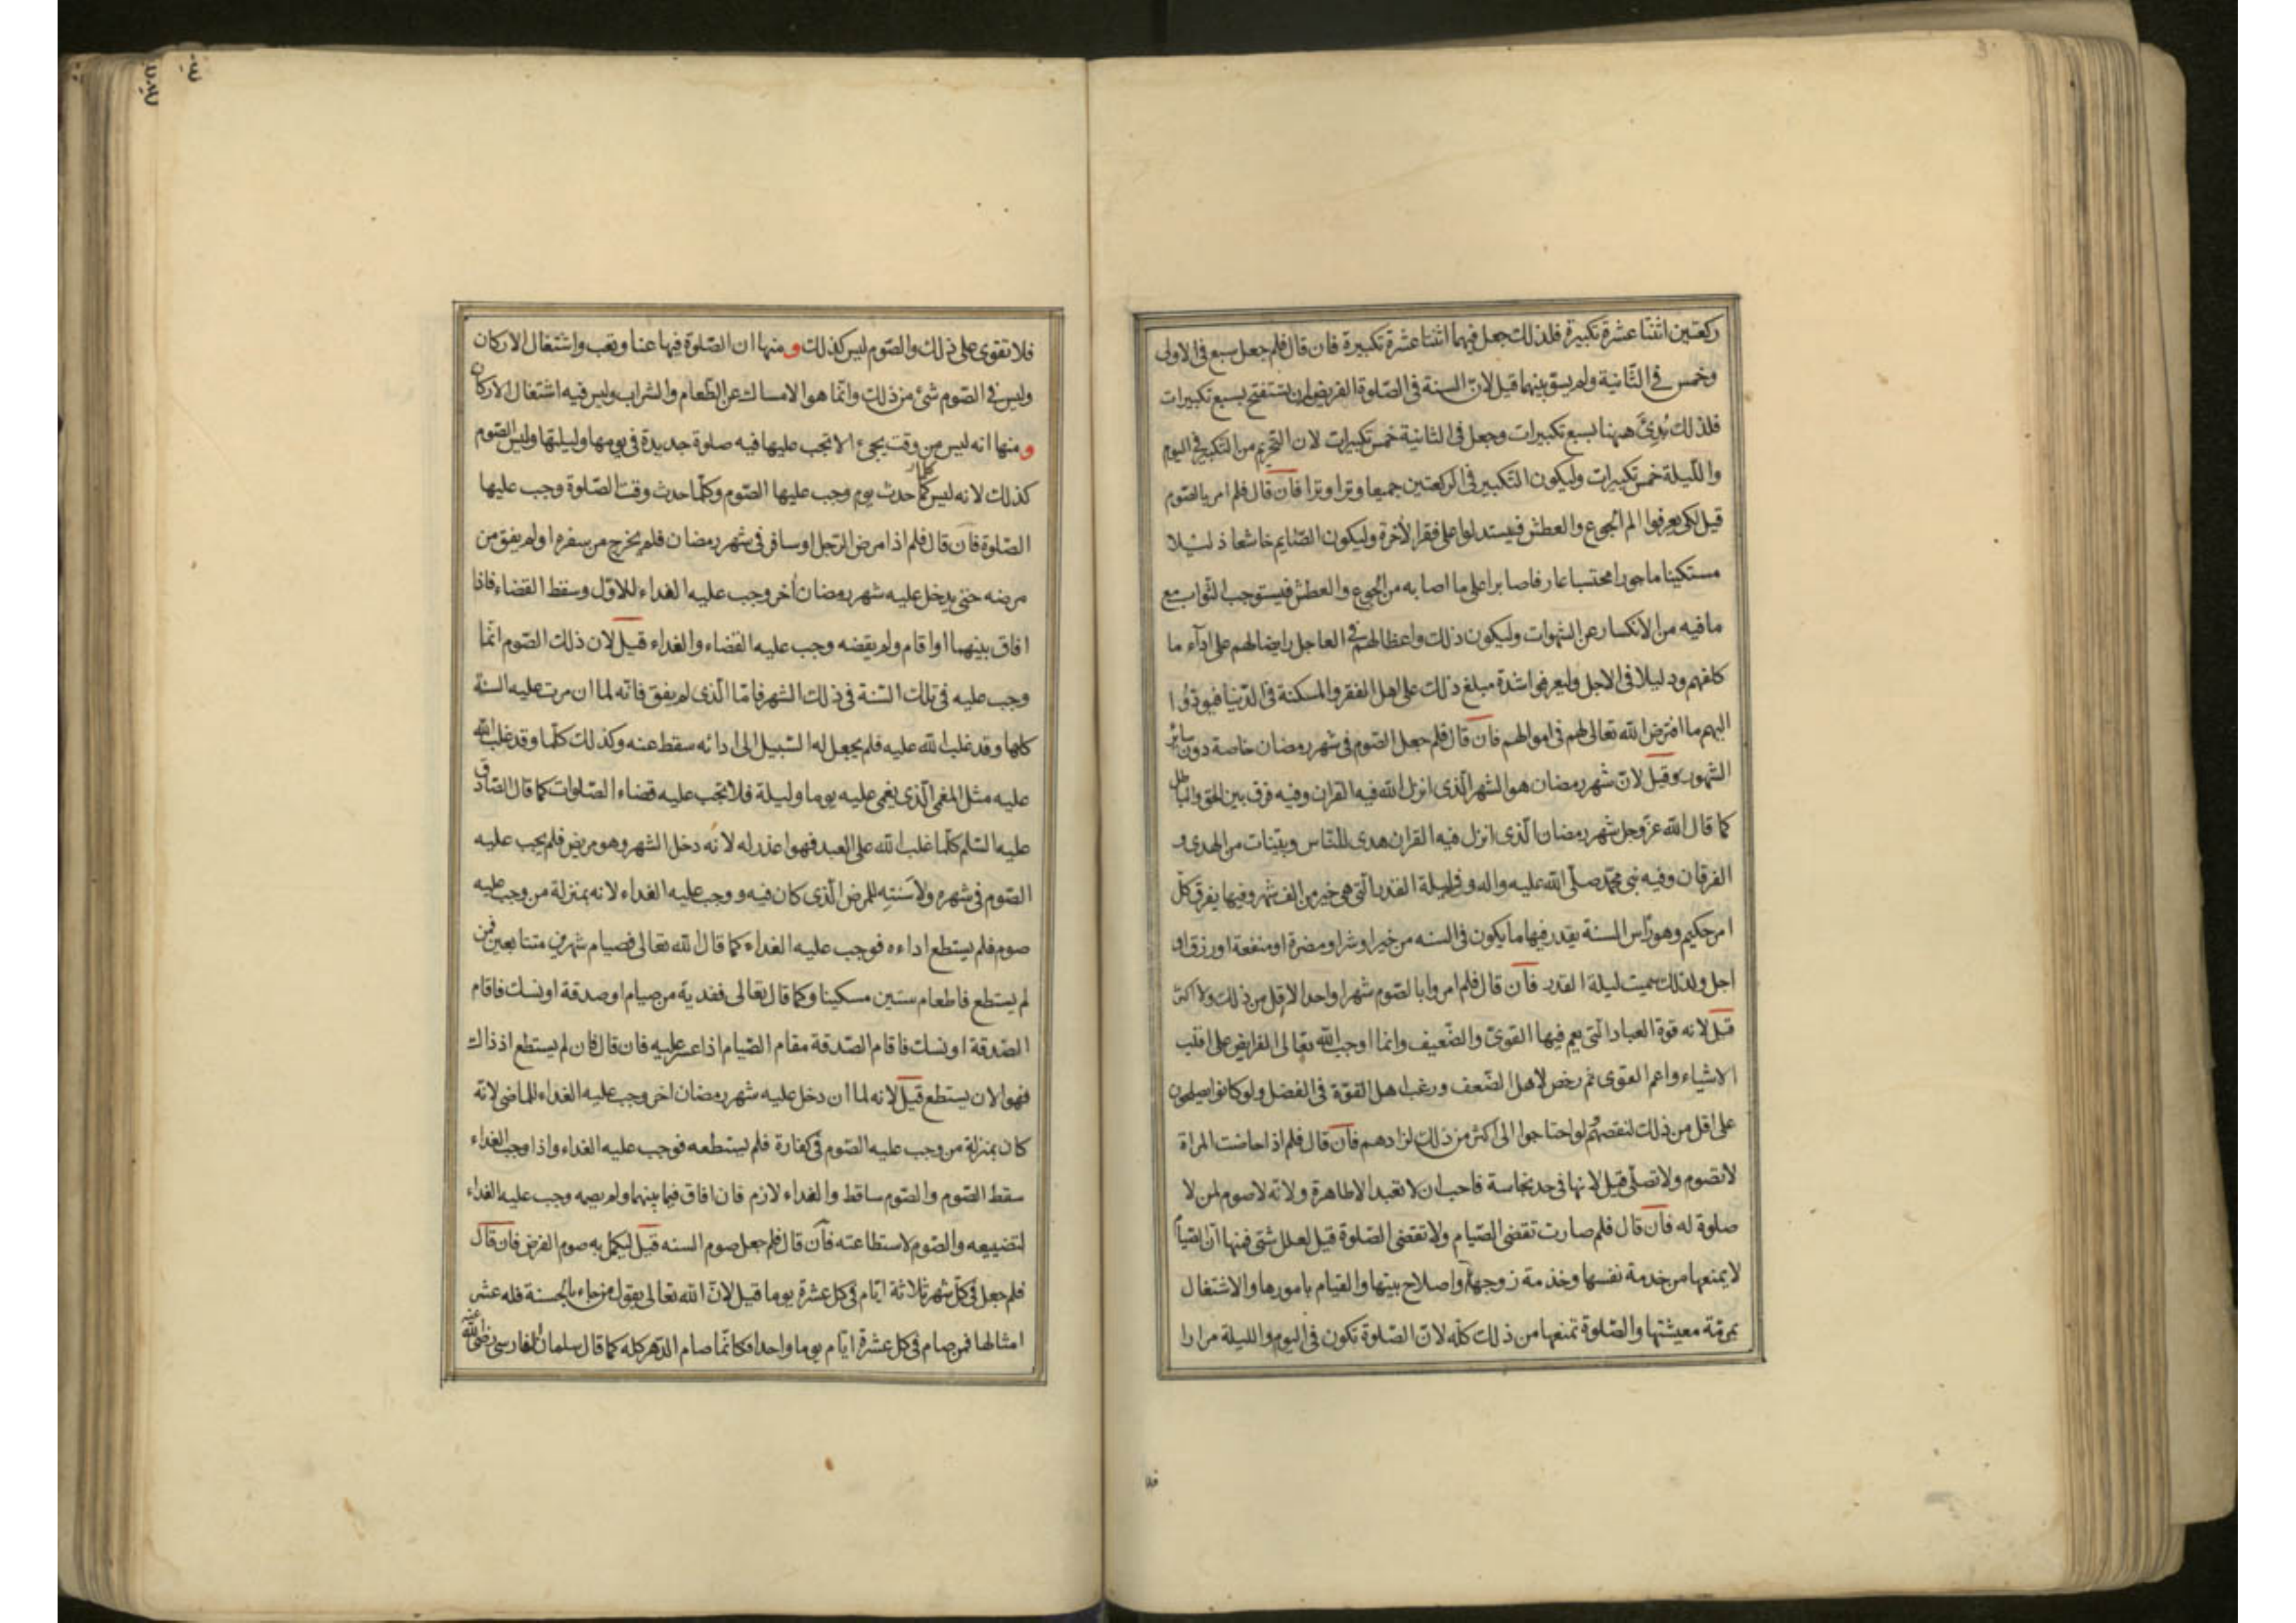 ركعتين اثنتا عشرة تكبيرة فلذلك جعل فيهما اثنتا عشرة تكبيرة فان قال فلم جعل سبع فى الاولى
وخمس في الثّانية ولم يسوّ بينهما قيل لانّ السنة فى الصّلوة الفريضة ان يستفتح بسبع تكبيرات
فلذلك بُدِئَ ههنا بسبع تكبيرات وجعل فى الثانية خمس تكبيرات لان التحريم من التكبير في اليوم
والليلة خمس تكبيرات وليكون التكبير فى الركعتين جميعا وترا وترا فان قال فلم امر بالصّوم
قيل لكى يعرفوا الم الجوع والعطش فيستدلوا على فقر الاخرة وليكون الصّايم خاشعا ذليلا
مستكينا ماجورا محتسبا عارفا صابرا على ما اصابه من الجوع والعطش فيستوجب الثواب مع
ما فيه من الانكسار عن الشهوات وليكون ذلك واعظا لهم فى العاجل رايضا لهم على اداء ما
كلفهم ودليلا فى الاجل وليعرفوا شدة مبلغ ذلك على اهل الفقر والمسكنة فى الدّنيا فيودّوا
اليهم ما افترض الله تعالى لهم فى اموالهم فان قال فلم جعل الصّوم فى شهر رمضان خاصة دون سائر
الشهور قيل لانّ شهر رمضان هو الشهر الّذى انزل الله فيه القران وفيه فرق بين الحق والباطل
كما قال الله عزّ وجل شهر رمضان الّذى انزل فيه القران هدى للنّاس وبيّنات من الهدى و
الفرقان وفيه نبى محمّد صلّى الله عليه واله وفيه ليلة القدر الّتى هى خير من الف شهر وفيها يفرق كلّ
امر حكيم وهو رأس السنة يقدر فيها ما يكون فى السنه من خير او شر او مضرة او منفعة او رزق او
اجل ولذلك سميت ليلة القدر فان قال فلم امروا بالصّوم شهرا واحدا لا اقل من ذلك ولا اكثر
قيل لانه قوة العباد الّتى يعم فيها القوىّ والضّعيف وانما اوجب الله تعالى الفرايض على اغلب
الاشياء واعم القوى ثم رخص لاهل الضّعف ورغب اهل القوّة فى الفضل ولو كانوا يصلحون
على اقل من ذلك لنقصهم ولو احتاجوا الى اكثر من ذلك لزادهم فان قال فلم اذا حاضت المراة
لا تصوم ولا تصلّى قيل لانها فى حد نجاسة فاحب ان لا تعبد الا طاهرة ولانه لا صوم لمن لا
صلوة له فان قال فلم صارت تقضى الصّيام ولا تقضى الصّلوة قيل لعلل شتى فمنها انّ الصّيام
لا يمنعها من خدمة نفسها وخدمة زوجها واصلاح بيتها والقيام بامورها والاشتغال
بمرمّة معيشتها والصّلوة تمنعها من ذلك كلّه لانّ الصّلوة تكون فى اليوم والليلة مرارا
فلا
فلا تقوى على ذلك والصّوم ليس كذلك و منها ان الصّلوة فيها عنا وتعب واشتغال الاركان
وليس فى الصّوم شئ من ذلك وانّما هو الامساك عن الطّعام والشراب وليس فيه اشتغال الاركان
و منها انه ليس من وقت يجئ الا تجب عليها فيه صلوة جديدة فى يومها وليلتها وليس الصّوم
كذلك لانه ليس كلما حدث يوم وجب عليها الصّوم وكلّما حدث وقت الصّلوة وجب عليها
الصّلوة فان قال فلم اذا مرض الرّجل او سافر فى شهر رمضان فلم يخرج من سفره او لم يفق من
مرضه حتى يدخل عليه شهر رمضان اخر وجب عليه الفداء للاوّل وسقط القضاء فاذا
افاق بينهما او اقام ولم يقضه وجب عليه القضاء والفداء قيل لان ذلك الصّوم انّما
وجب عليه فى تلك السّنة فى ذلك الشهر فامّا الّذى لم يفق فانّه لما ان مرت عليه السنة
كلها وقد غلب الله عليه فلم يجعل له السّبيل الى ادائه سقط عنه وكذلك كلّما وقد غلب الله
عليه مثل المغمى الّذى يغمى عليه يوما وليلة فلا تجب عليه قضاء الصّلوات كما قال الصّادق
عليه السّلم كلّما غلب الله على العبد فهو اعذر له لانه دخل الشهر وهو مريض فلم يجب عليه
الصّوم فى شهره ولا سَنته للمرض الّذى كان فيه ووجب عليه الفداء لانه بمنزلة من وجب عليه
صوم فلم يستطع اداءه فوجب عليه الفداء كما قال الله تعالى فصيام شهرين متتابعين فمن
لم يستطع فاطعام ستين مسكينا وكما قال تعالى ففدية من صيام او صدقة او نسك فاقام
الصّدقة او نسك فاقام الصّدقة مقام الصّيام اذا عسر عليه فان قال فان لم يستطع اذ ذاك
فهو الان يستطع قيل لانه لما ان دخل عليه شهر رمضان اخر وجب عليه الفداء للماضى لانّه
كان بمنزلة من وجب عليه الصّوم فى كفارة فلم يستطعه فوجب عليه الفداء واذا وجب الفداء
سقط الصّوم والصّوم ساقط والفداء لازم فان افاق فيما بينهما ولم يصمه وجب عليه الفداء
لتضييعه والصّوم لاستطاعته فان قال فلم جعل صوم السنه قيل ليكمل به صوم الفرض فان قال
فلم جعل فى كلّ شهر ثلاثة ايّام فى كل عشرة يوما قيل لانّ الله تعالى يقول من جاء بالحسنة فله عشر
امثالها فمن صام فى كل عشرة ايّام يوما واحدا فكانّما صام الدّهر كله كما قال سلمان الفارسى رضى الله عنه